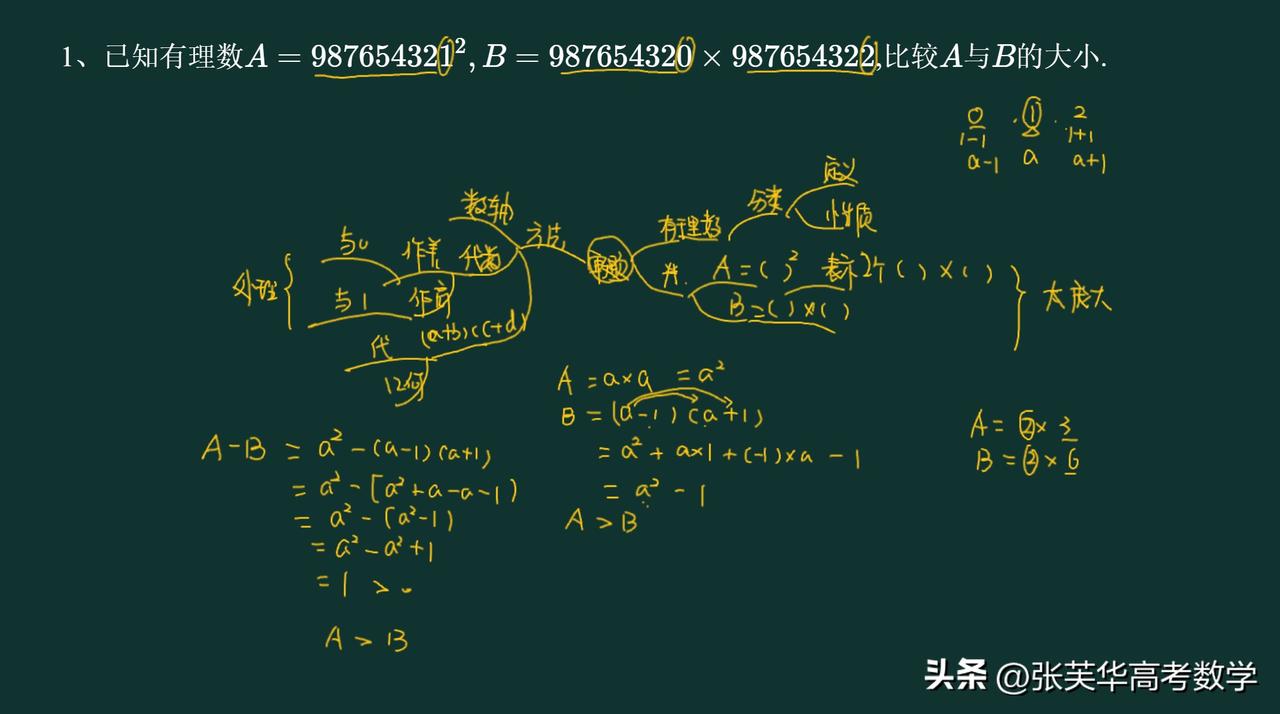 1、已知有理数A = 987654321², B = 987654320 × 987654322,比较A与B的大小.
0 · ① · 2
1-1 1+1
a-1 a a+1
定义
数轴 分类
方法 有理数 性质
与0 作差 代数 审题
处理 A = ( )² 表示2个 ( ) × ( )
与1 作商 B = ( ) × ( ) 太庞大
(a+b)(c+d)
代
几何
A = a×a = a²
B = (a-1)(a+1)
= a² + a×1 + (-1)×a - 1
= a² - 1
A > B
A = ②× 3
B = ②× 6
A-B = a² - (a-1)(a+1)
= a² - [a²+a-a-1)
= a² - (a²-1)
= a² - a² + 1
= 1 > 0
A > B
头条 @张芙华高考数学